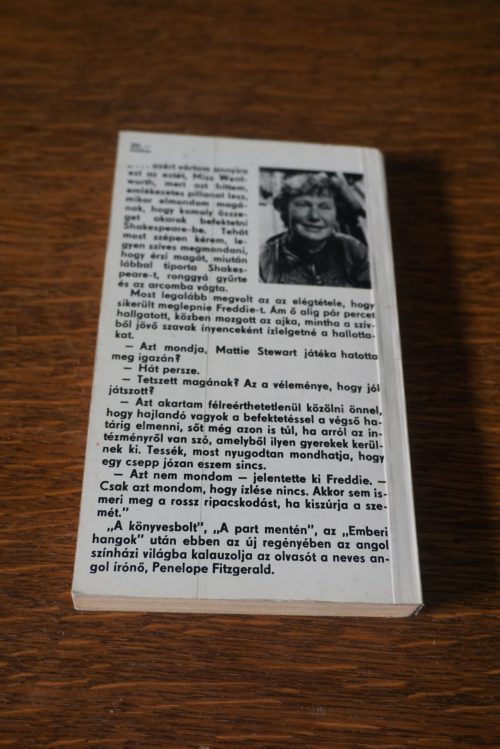 azért vártam annyira
ezt az estét, Miss Went-
worth, mert azt hittem,
emlékezetes pillanat lesz,
mikor elmondom magá-
nak, hogy komoly össze-
get akarok befektetni
Shakespeare-be. Tehát
most szépen kérem, le-
gyen szíves megmondani,
hogy érzi magát, miután
lábbal tiporta Shakes-
peare-t, ronggyá gyűrte
és az arcomba vágta.
Most legalább megvolt az az elégtétele, hogy
sikerült meglepnie Freddie-t. Ám ő alig pár percet
hallgatott, közben mozgott az ajka, mintha a szív-
ből jövő szavak ínyenceként ízlelgetné a hallotta-
kat.
— Azt mondja, Mattie Stewart játéka hatotta
meg igazán?
— Hát persze.
— Tetszett magának? Az a véleménye, hogy jól
játszott?
— Azt akartam félreérthetetlenül közölni önnel,
hogy hajlandó vagyok a befektetéssel a végső ha-
tárig elmenni, sőt még azon is túl, ha arról az in-
tézményről van szó, amelyből ilyen gyerekek kerül-
nek ki. Tessék, most nyugodtan mondhatja, hogy
egy csepp józan eszem sincs.
— Azt nem mondom — jelentette ki Freddie. —
Csak azt mondom, hogy ízlése nincs. Akkor sem is-
meri meg a rossz ripacskodást, ha kiszúrja a sze-
mét.”
„A könyvesbolt”, „A part mentén”, az „Emberi
hangok” után ebben az új regényében az angol
színházi világba kalauzolja az olvasót a neves an-
gol írónő, Penelope Fitzgerald.